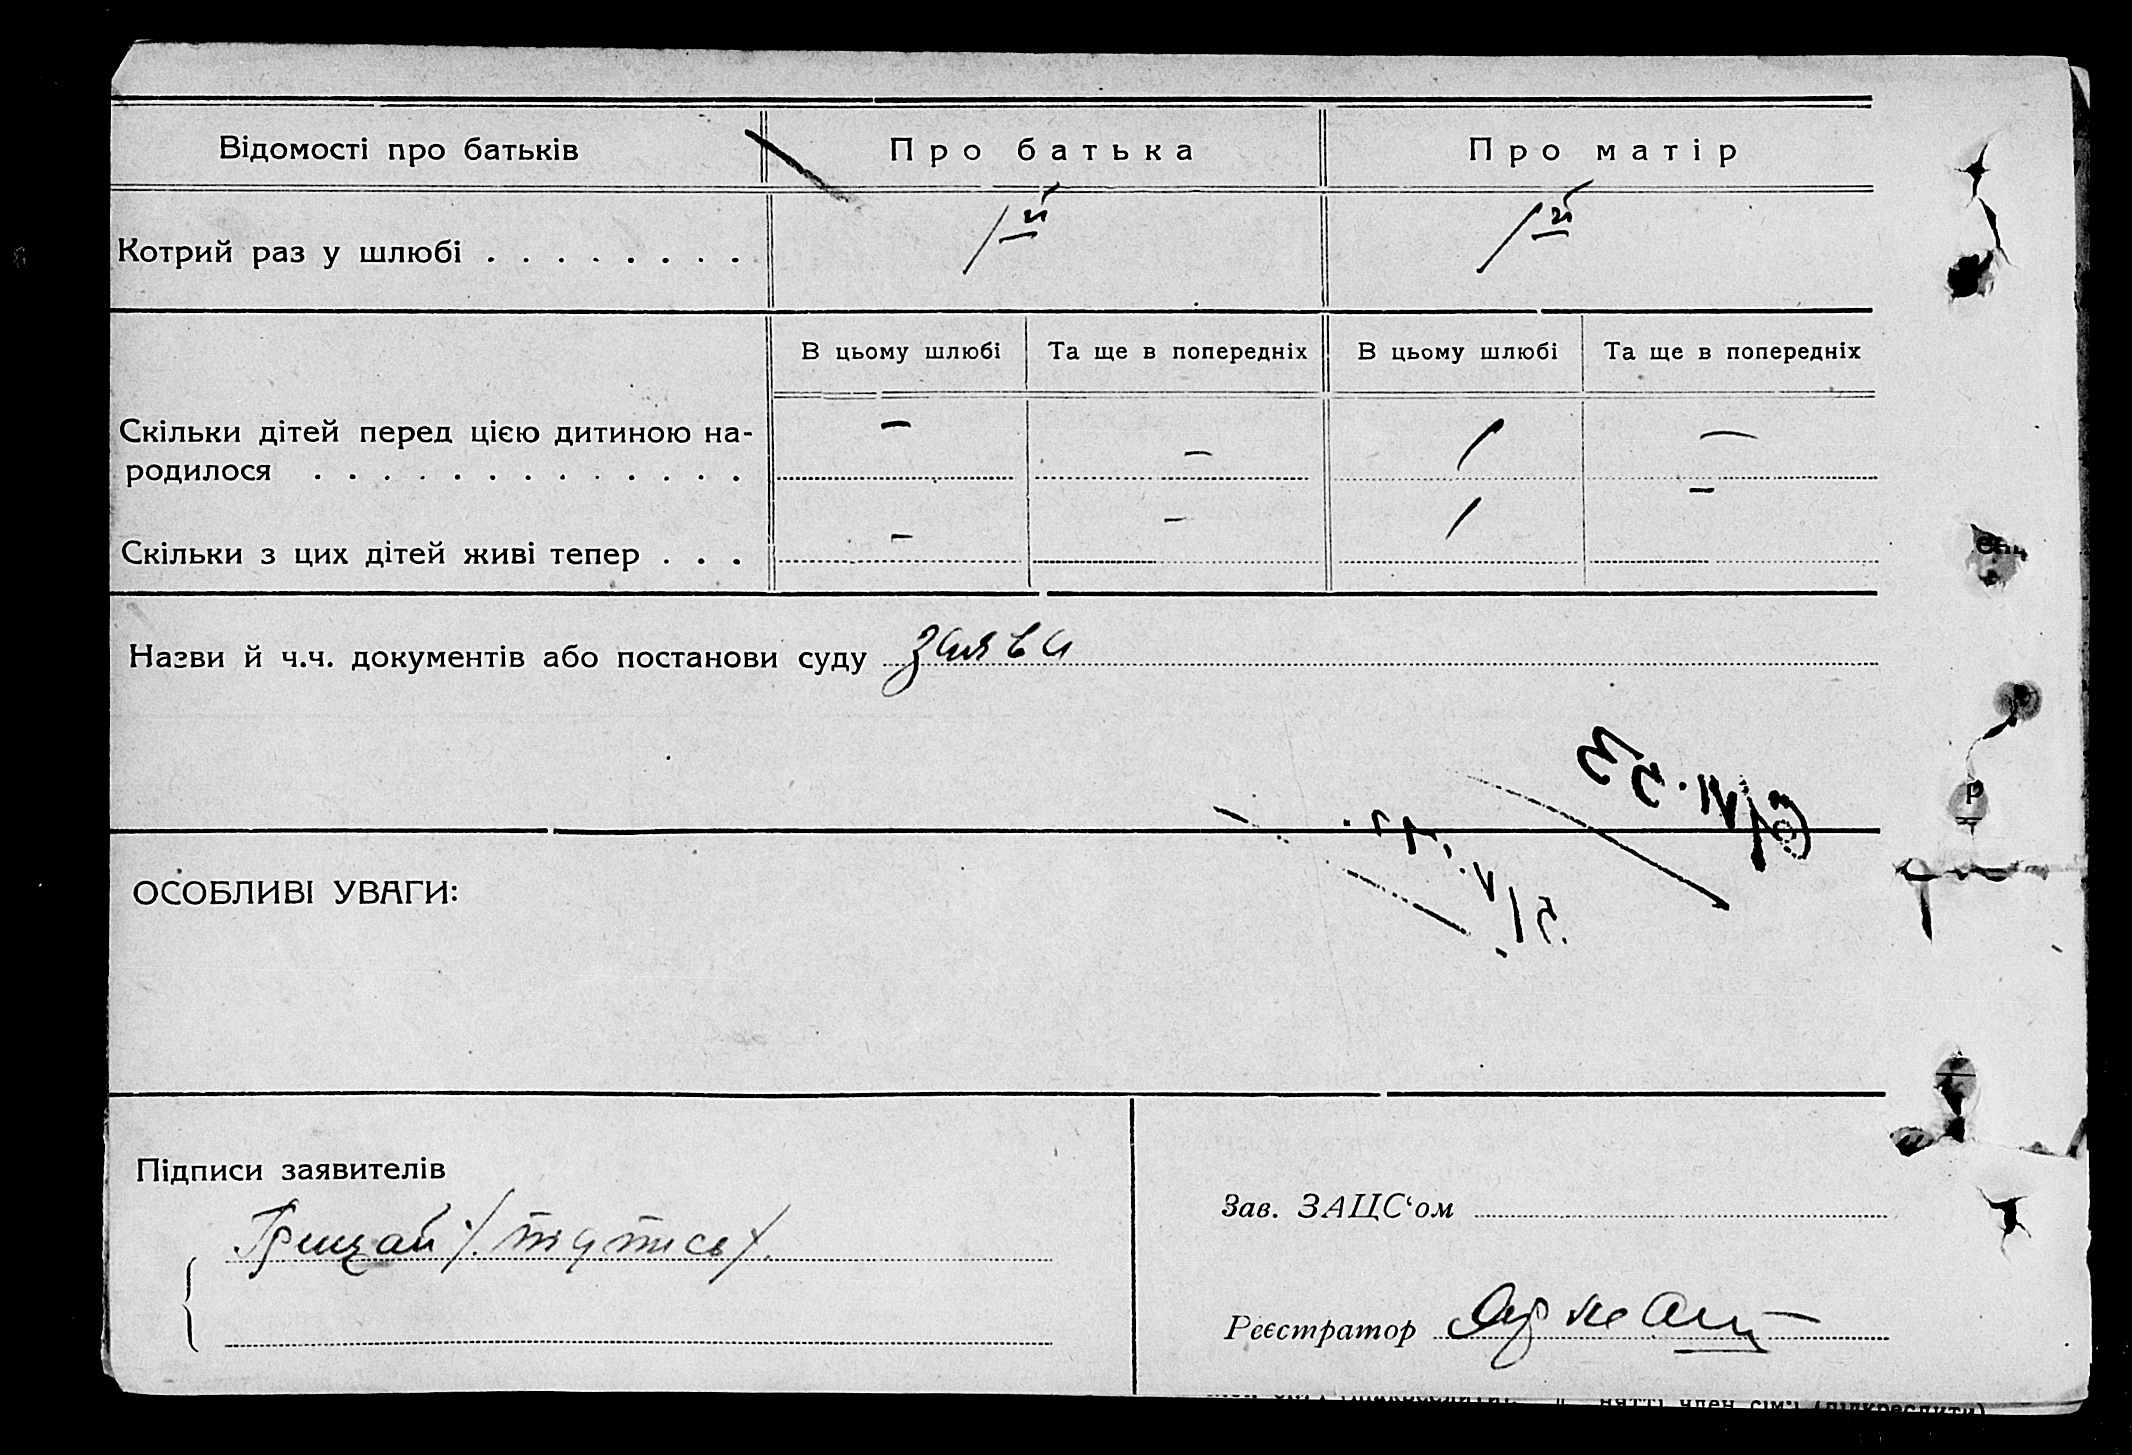 Відомості про батьків Про батька Про матір
Котрий раз у шлюбі . . . . . . . . 1й 1й
В цьому шлюбі Та ще в попередніх В цьому шлюбі Та ще в попередніх
Скільки дітей перед цією дитиною на- – – 1 –
родилося . . . . . . . . . . . . .
Скільки з цих дітей живі тепер . . . – – 1 –
Назви й ч.ч. документів або постанови суду заява
ОСОБЛИВІ УВАГИ:
Підписи заявителів
Грицай /підпись/.
Зав. ЗАЦС‘ом
Реєстратор
нятті член сім'ї (підкреслити)